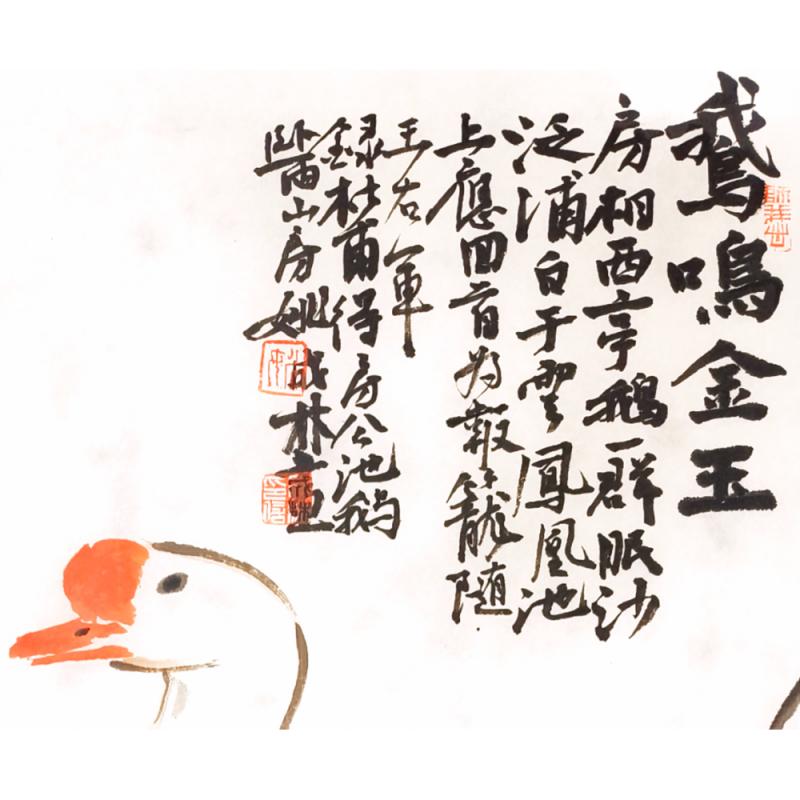 鵝鳴金玉
房相西亭鵝一群眠沙
泛浦白于雲鳳凰池
上應回首为報籠随
王右軍
録杜甫得房公池鹅
卧雨山房姚成林